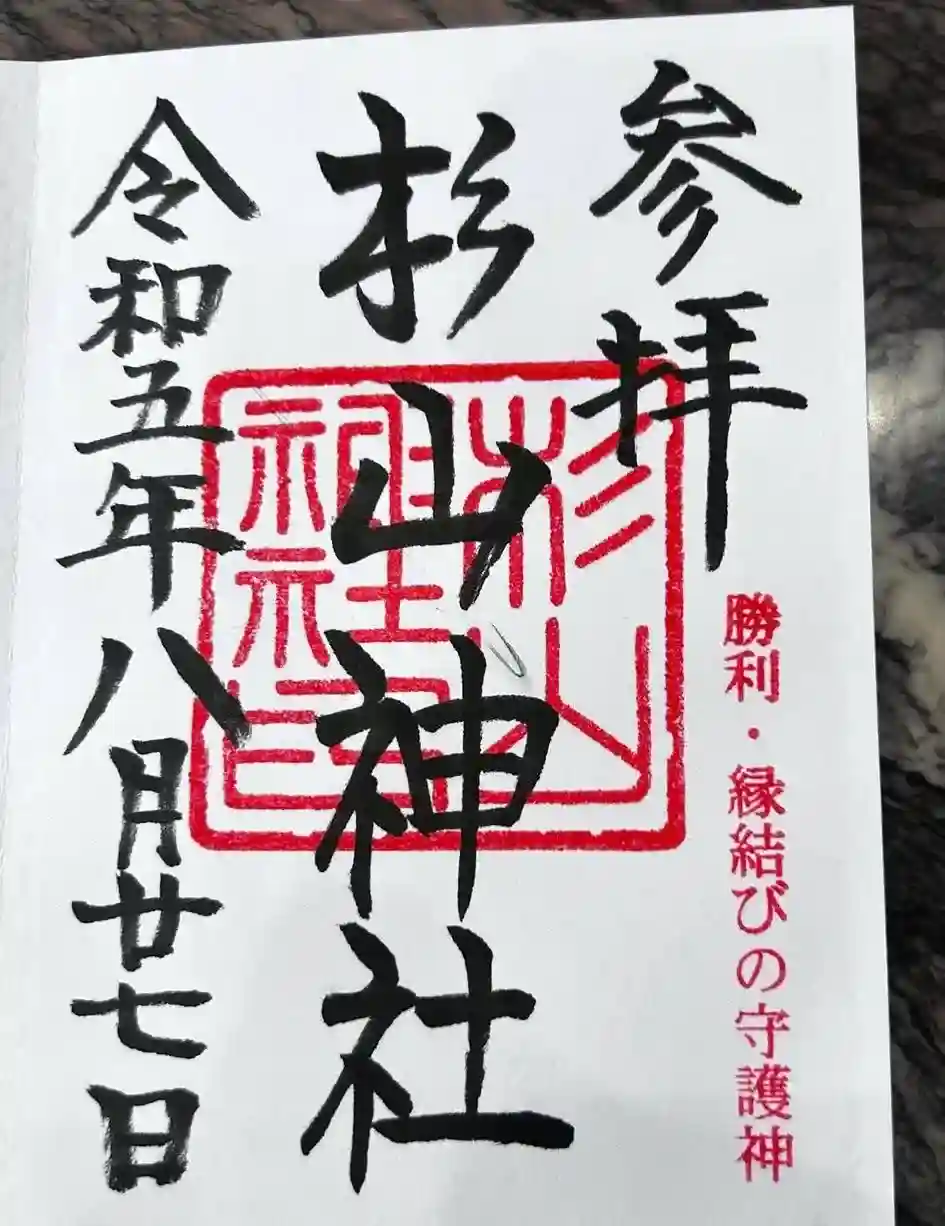 参拝
勝利・縁結びの守護神
杉山神社
杉山
神社
之印
令和五年八月廿七日